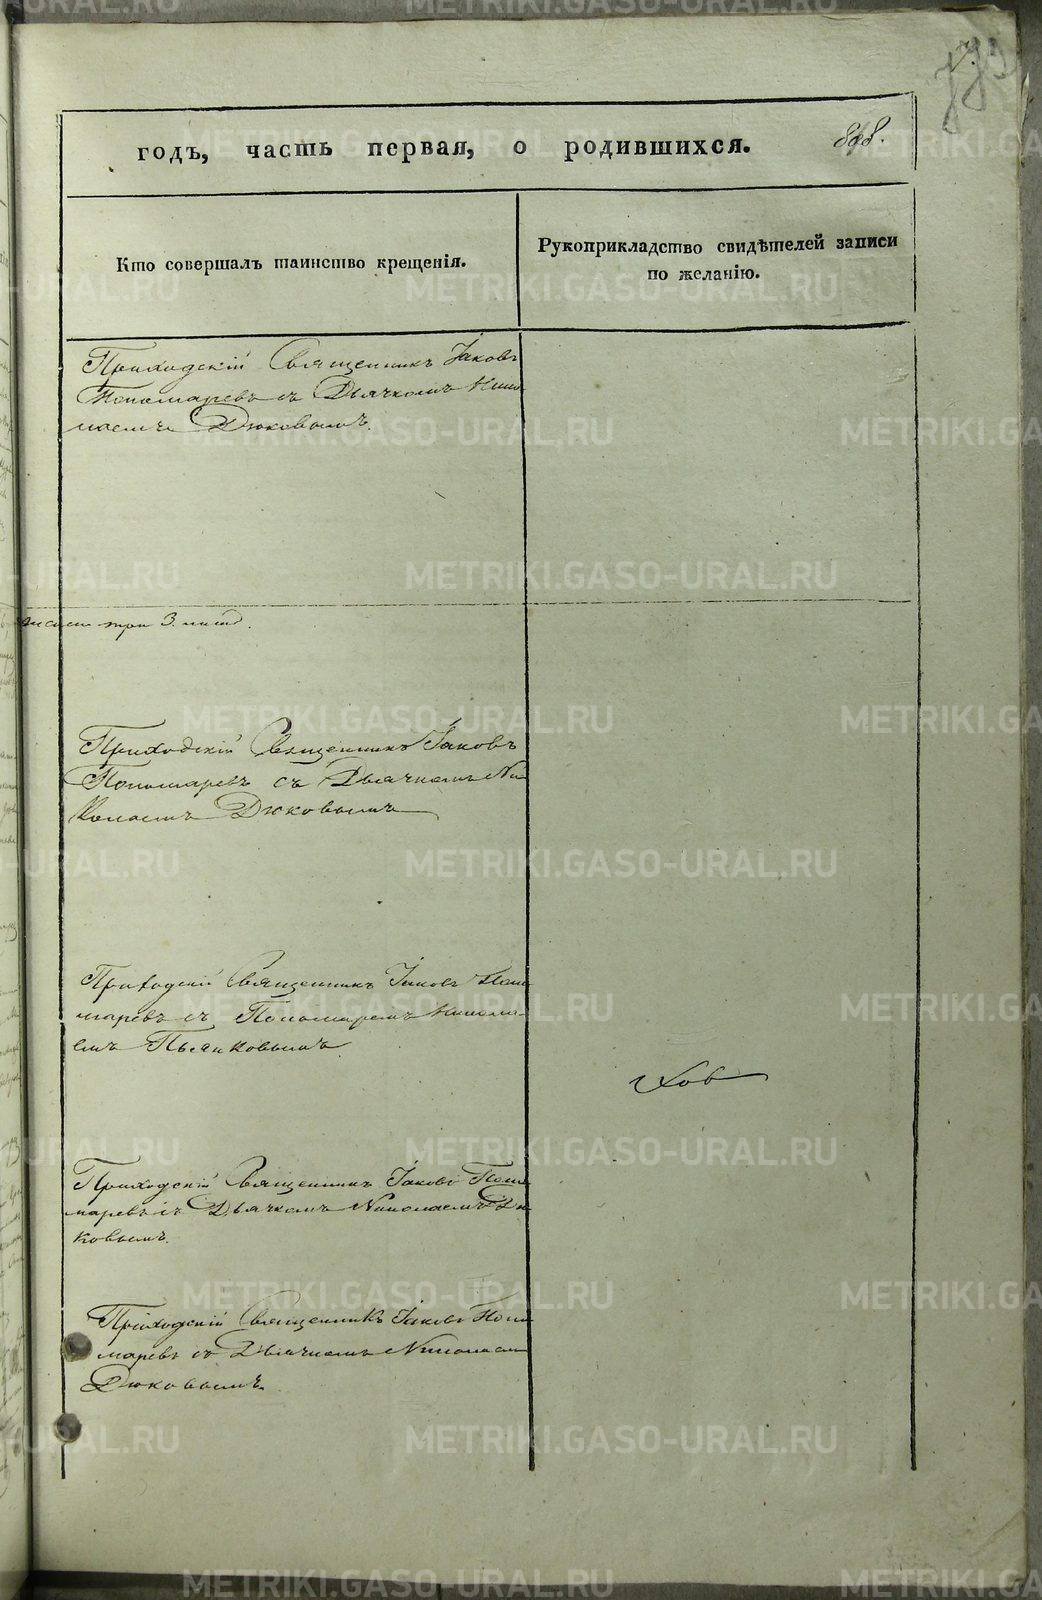 годъ, часть первая, о родившихся.
868.
Кто совершалъ таинство крещенія.
Рукоприкладство свидѣтелей записи
по желанію.
Приходскій Священникъ Іаковъ
Пономаревъ съ Дьячкомъ Нико
лаемъ Дюковымъ.
три 3. листа.
Приходскій Священникъ Іаковъ
Пономаревъ съ Дьячкомъ Ни
колаемъ Дюковымъ
Приходскій Священникъ Іаковъ Поно
маревъ съ Пономаремъ Никола
емъ Пьянковымъ
ховъ
Приходскій Священникъ Іаковъ Поно
маревъ съ Дьячкомъ Николаемъ Дю
ковымъ.
Приходскій Священникъ Іаковъ Поно
маревъ съ Дьячкомъ Николаем
Дюковымъ.
METRIKI.GASO-URAL.RU